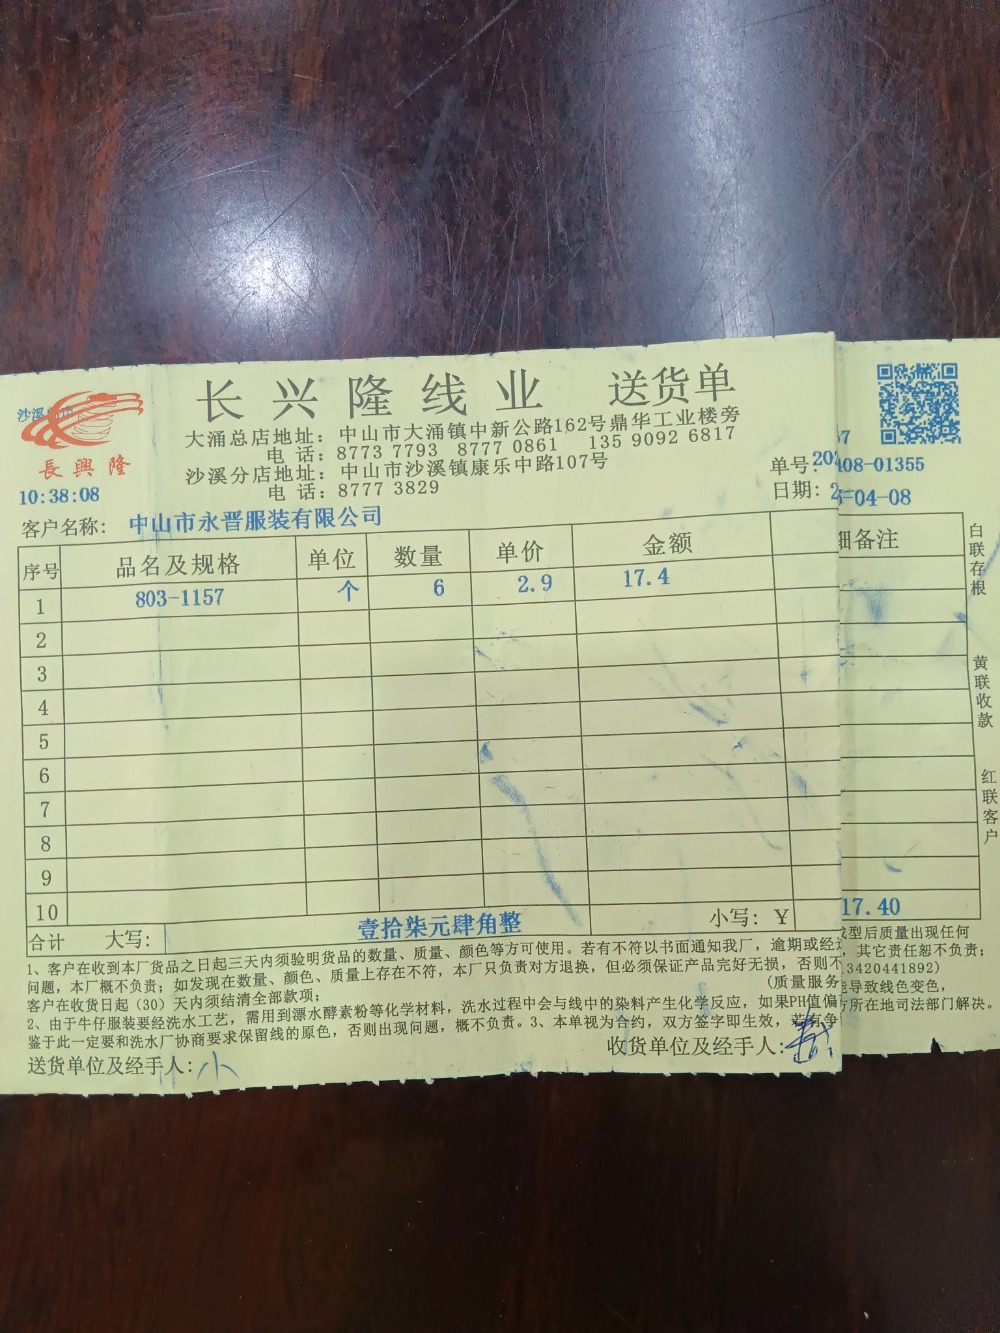 长兴隆线业 送货单
長興隆
大涌总店地址：中山市大涌镇中新公路162号鼎华工业楼旁
电 话：8773 7793 8777 0861 135 9092 6817
沙溪分店地址：中山市沙溪镇康乐中路107号
电 话：8777 3829
10:38:08
单号：202 408-01355
日期：2 5-04-08
客户名称：中山市永晋服装有限公司
序号 品名及规格 单位 数量 单价 金额 细备注
1 803-1157 个 6 2.9 17.4
2
3
4
5
6
7
8
9
10
合计 大写：壹拾柒元肆角整 小写：￥ 17.40
1、客户在收到本厂货品之日起三天内须验明货品的数量、质量、颜色等方可使用。若有不符以书面通知我厂，逾期或经过 成型后质量出现任何
问题，本厂概不负责；如发现在数量、颜色、质量上存在不符，本厂只负责对方退换，但必须保证产品完好无损，否则不 ，其它责任恕不负责；
客户在收货日起（30）天内须结清全部款项； (质量服务 13420441892)
2、由于牛仔服装要经洗水工艺，需用到漂水酵素粉等化学材料，洗水过程中会与线中的染料产生化学反应，如果PH值偏 能导致线色变色，
鉴于此一定要和洗水厂协商要求保留线的原色，否则出现问题，概不负责。3、本单视为合约，双方签字即生效，若有争 方所在地司法部门解决。
送货单位及经手人：小
收货单位及经手人：
白联存根
黄联收款
红联客户